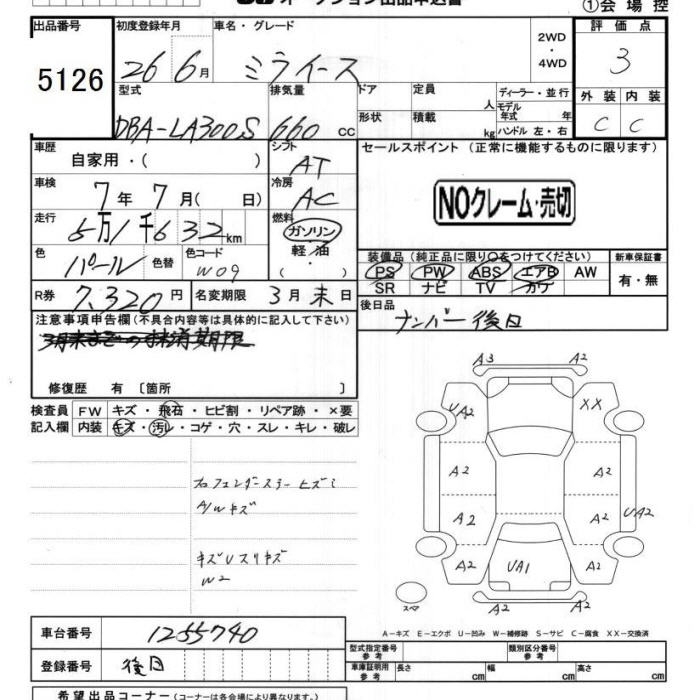 オークション出品申込書 ①会場控
出品番号 初度登録年月 車名・グレード 2WD・4WD 評価点
5126 26 6月 ミライース 3
型式 排気量 ドア 定員 人 ディーラー・並行 外装 内装
DBA-LA300S 660 cc 形状 積載 kg モデル年式 年 ハンドル 左・右 C C
車歴 自家用・( ) シフト AT セールスポイント (正常に機能するものに限ります)
車検 7年 7月( 日) 冷房 AC NOクレーム・売切
走行 5万1千632km 燃料 ガソリン・軽油・( )
色 パール 色替 色コード W09 装備品 (純正品に限り○をつけてください) 新車保証書
PS PW ABS エアB AW 有・無
SR ナビ TV カワ
R券 7,320円 名変期限 3月末日 後日品
ナンバー後日
注意事項申告欄 (不具合内容等は具体的に記入して下さい)
修復歴 有 〔箇所 〕
検査員 FW キズ・飛石・ヒビ割・リペア跡・×要
記入欄 内装 キズ・汚レ・コゲ・穴・スレ・キレ・破レ
A3 A2
UA2 XX
A2 A2
A2 A2 UA2
A2 UA1 A2
A/Wキズ
W2
スペア A2
車台番号 1255740
A-キズ E-エクボ U-凹み W-補修跡 S-サビ C-腐食 XX-交換済
登録番号 後日
型式指定番号 参考 類別区分番号 参考
車庫証明用 参考 長さ cm 幅 cm 高さ cm
希望出品コーナー (コーナーは各会場により異なります。)